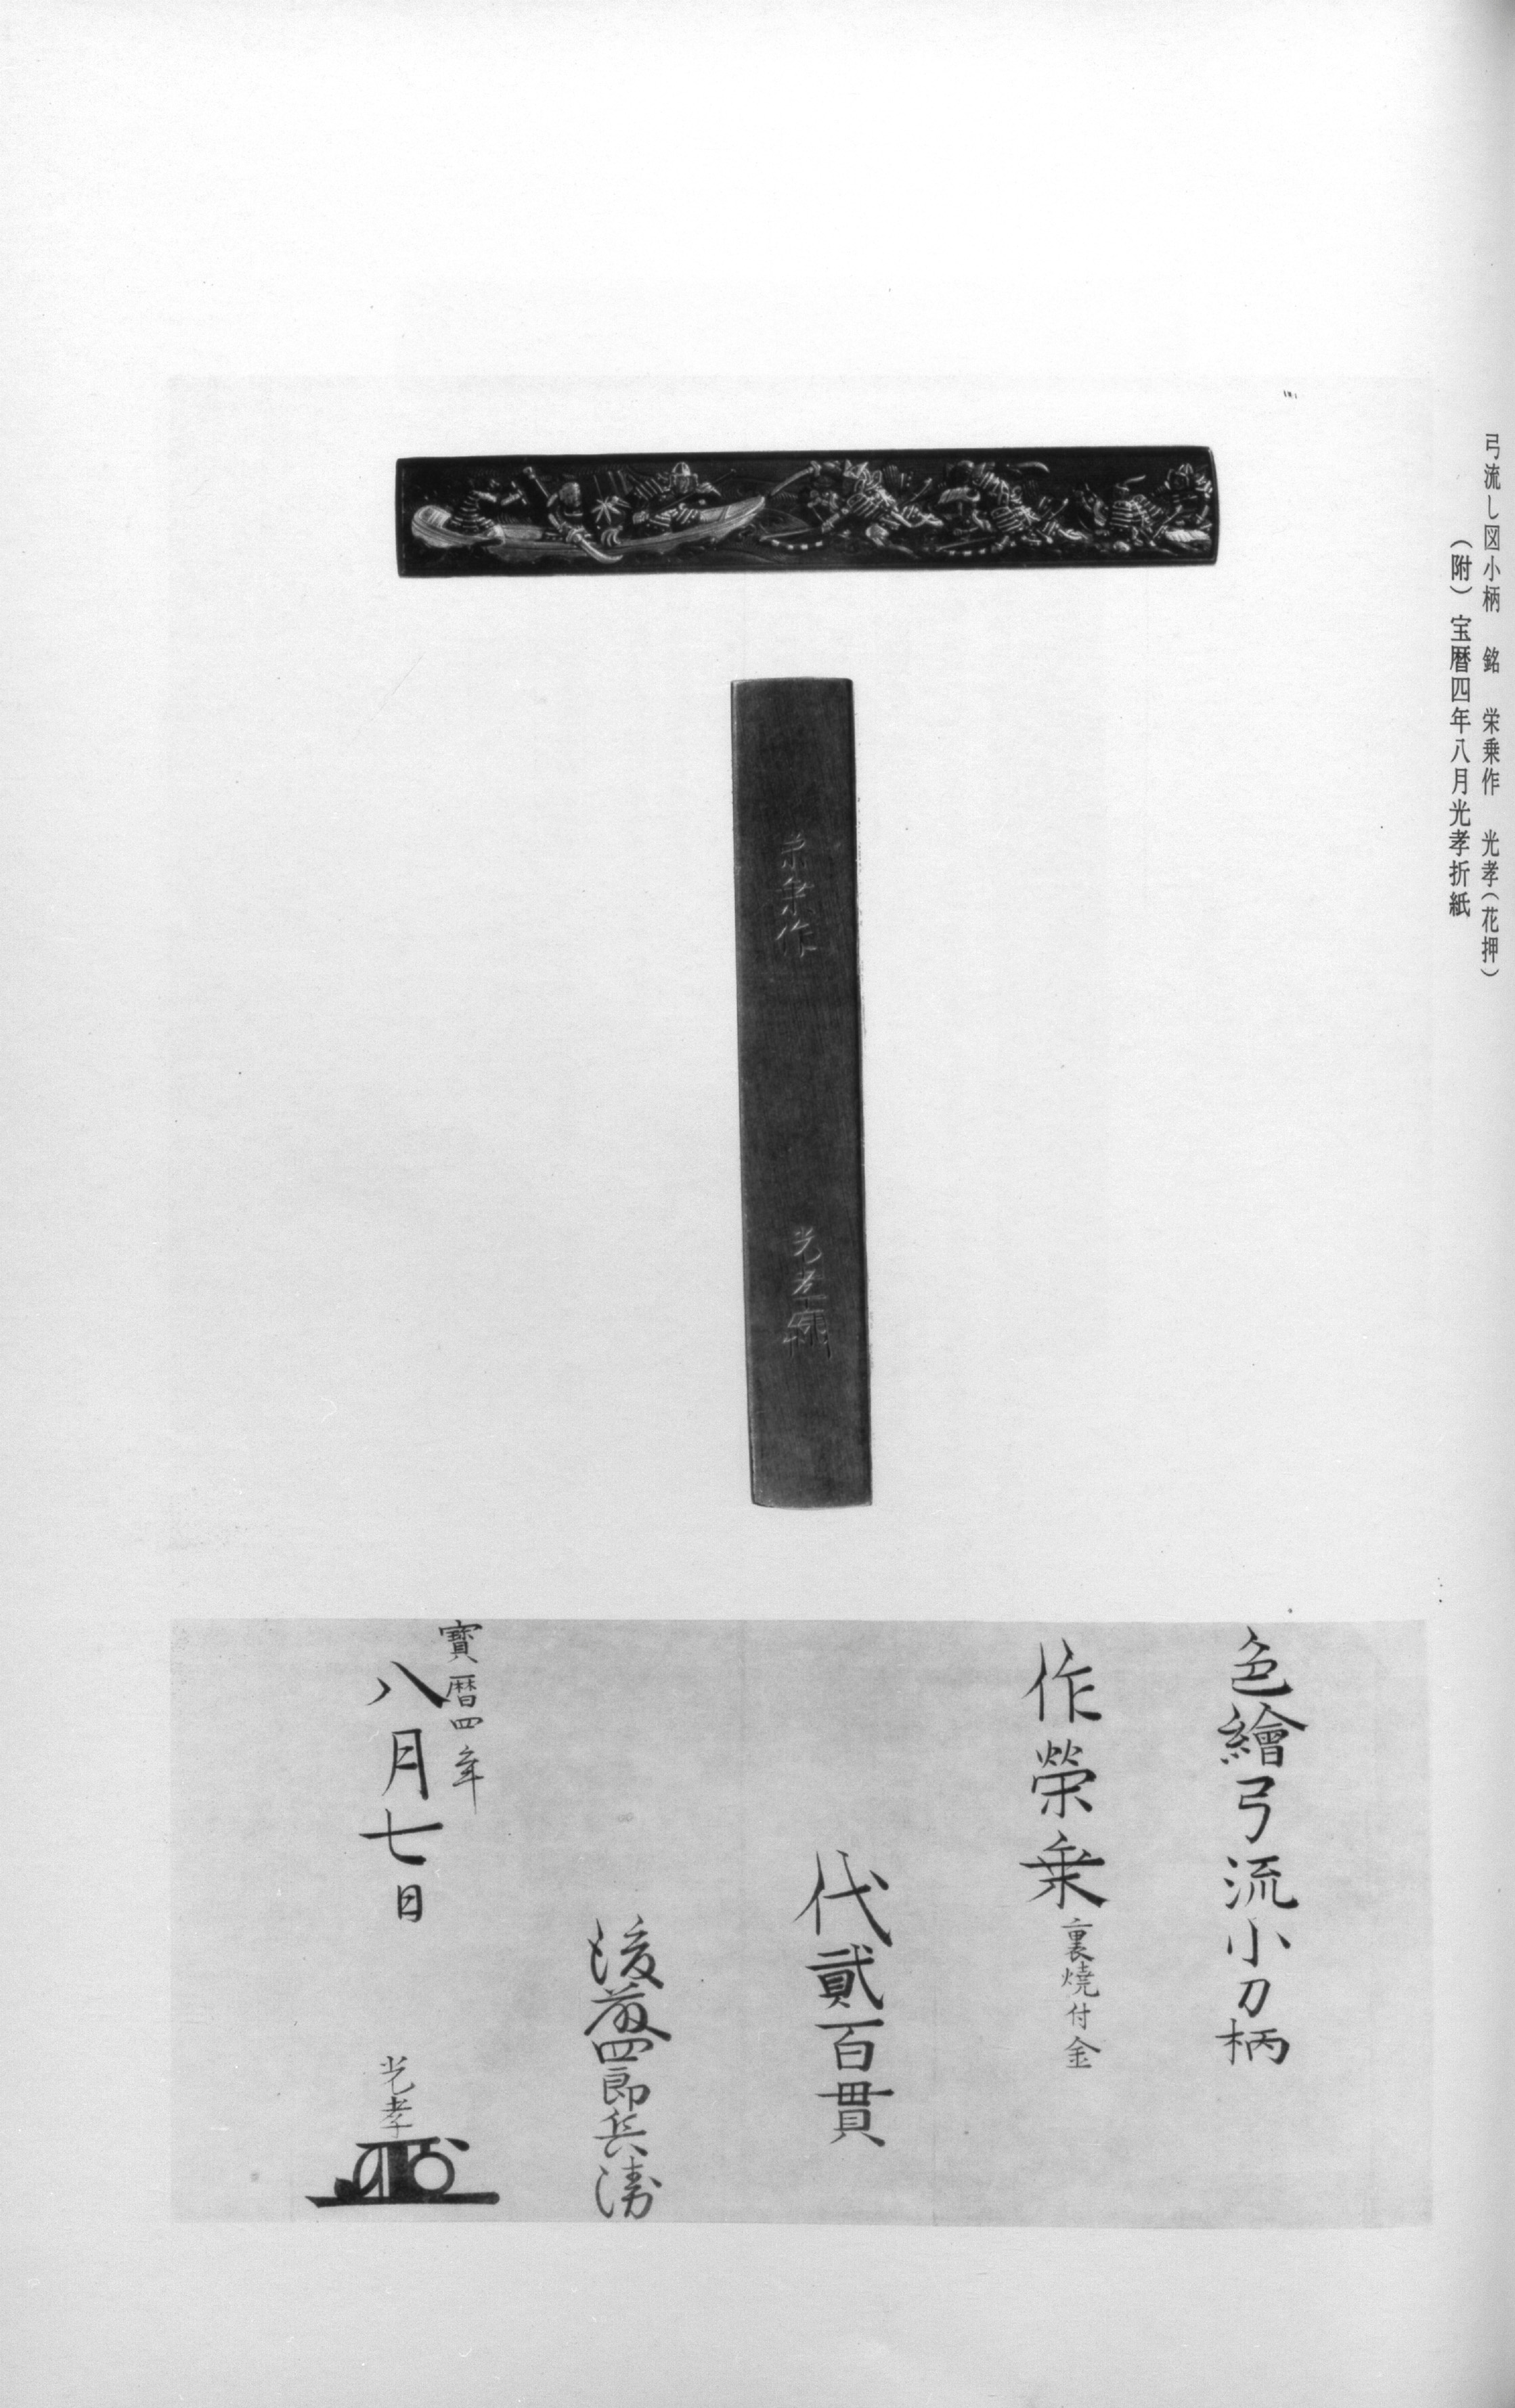 弓流し図小柄　銘　栄乗作　光孝（花押）
（附）宝暦四年八月光孝折紙
栄乗作
光孝
色繪弓流小刀柄
作榮乗裏焼付金
代貳百貫
後藤四郎兵衛
寳暦四年
八月七日
光孝